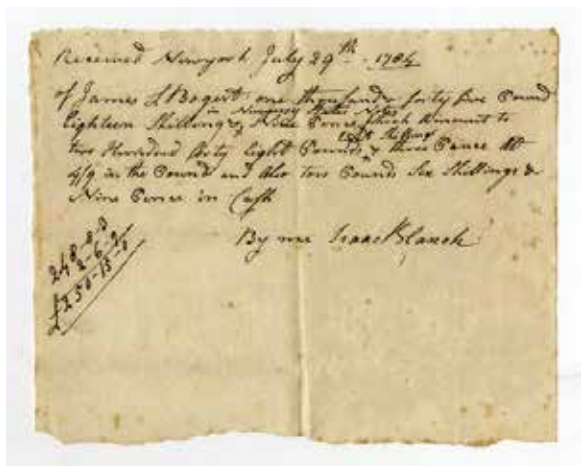 Received Newyork July 29th 1784
of James L Bogert one thousand & forty five Pound
Eighteen Shillings & Nine Pence which Amount to
two Hundred forty Eight Pounds Eight Shillings & three Pence At
4/9 in the Pound and Also two Pounds Six Shillings &
Nine Pence in Cash
By me Isaac Blanch
248-8-3
2-6-9
£250-15-0